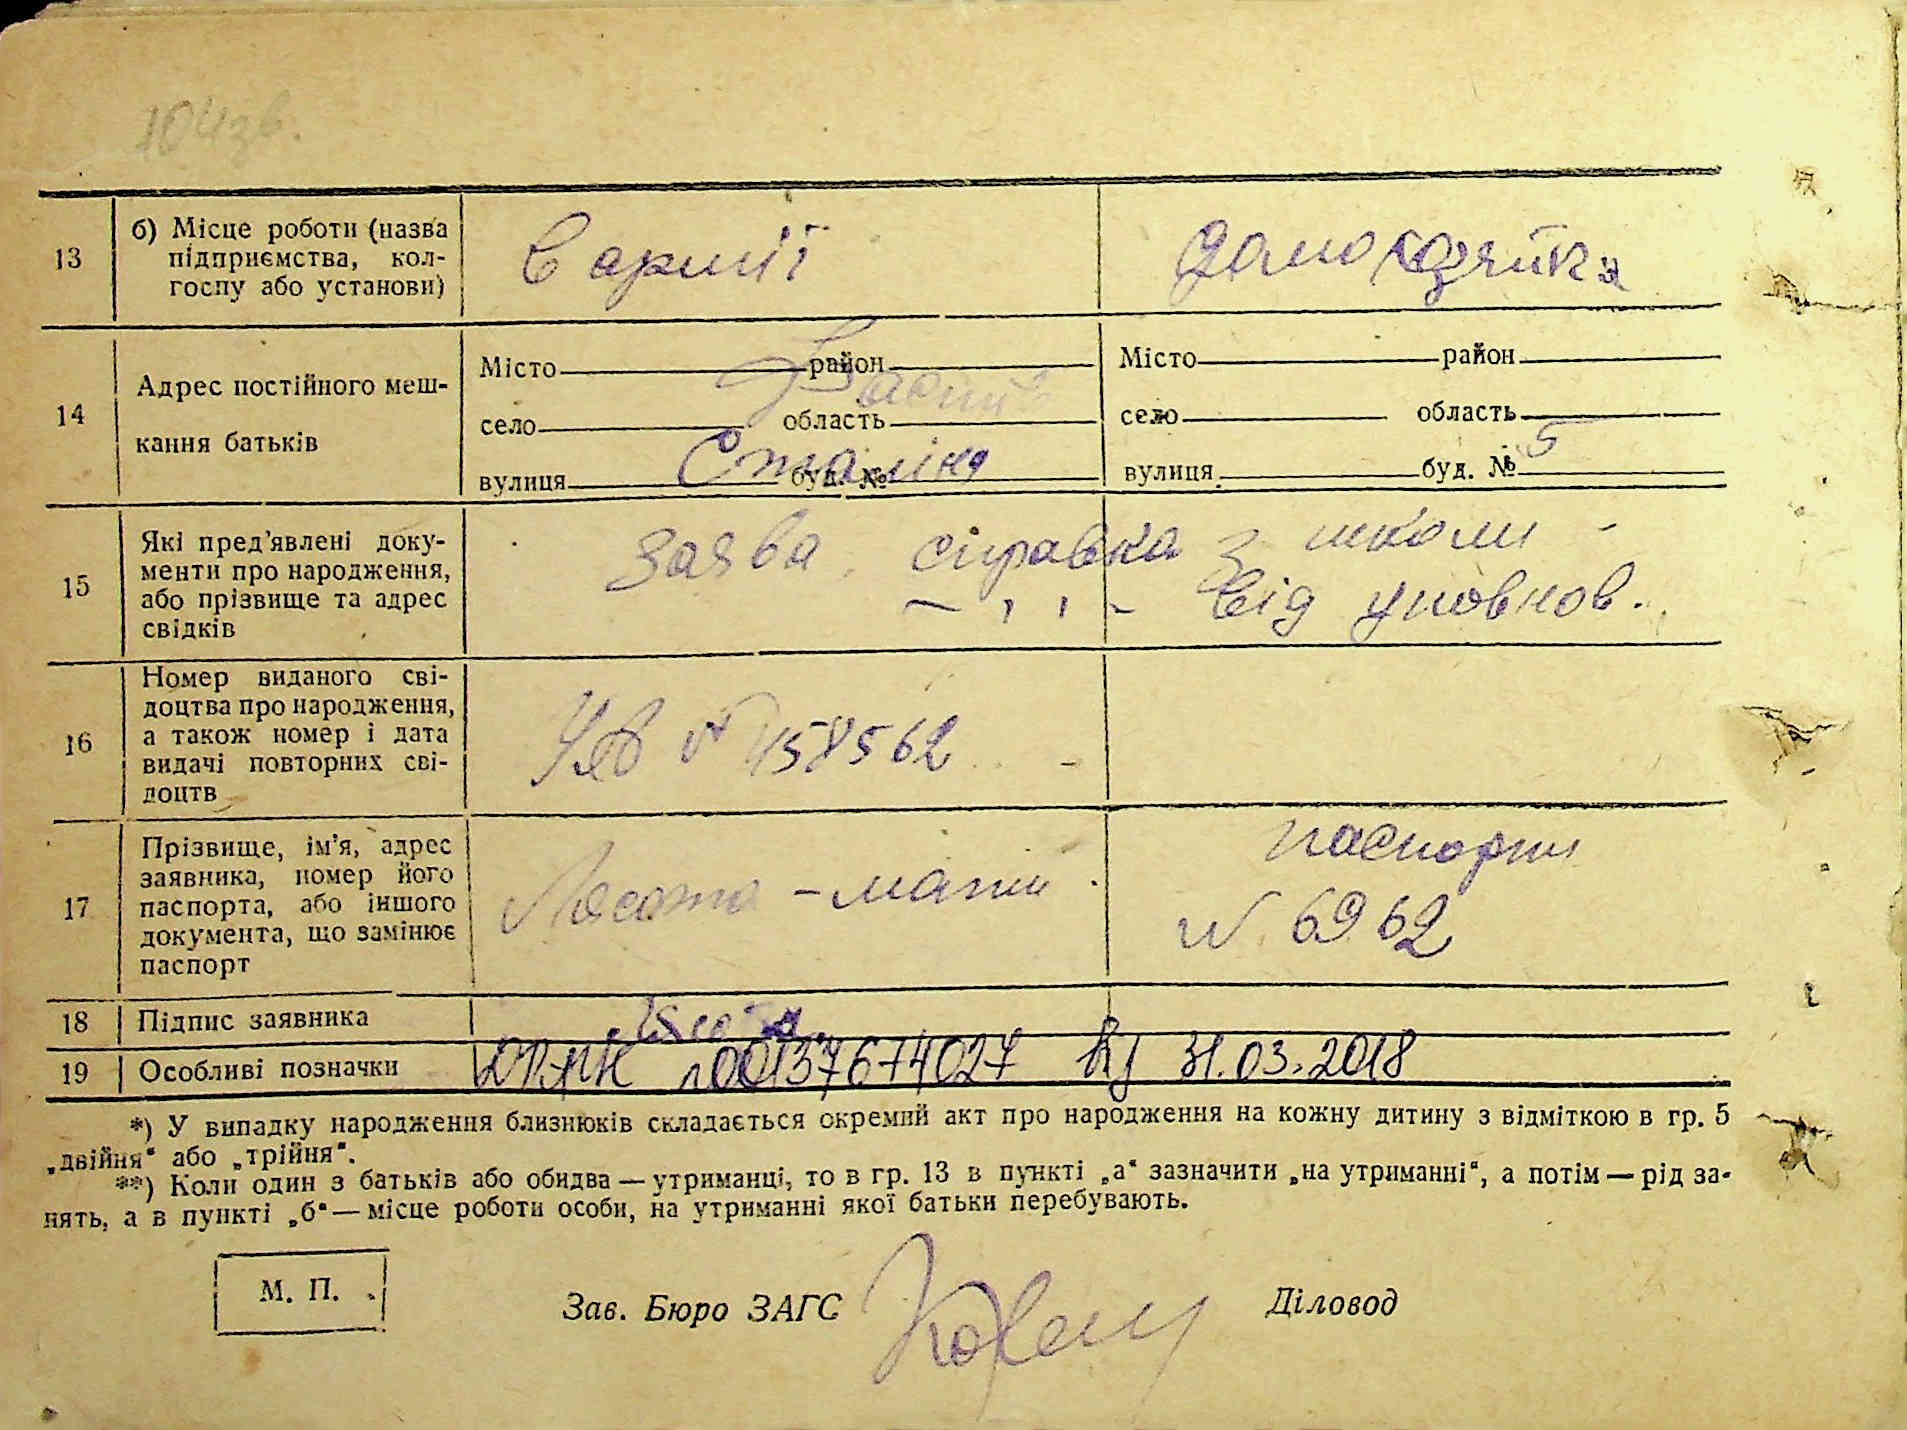 104зв.
13 б) Місце роботи (назва
підприємства, кол-
госпу або установи)
в армії
домохозяйка
14 Адрес постійного меш-
кання батьків
Місто район
село область
вулиця Сталіна буд. №
Місто район
село область
вулиця буд. № 5
15 Які пред'явлені доку-
менти про народження,
або прізвище та адрес
свідків
заява, справка з школи -
— " — від уповнов.
16 Номер виданого сві-
доцтва про народження,
а також номер і дата
видачі повторних сві-
доцтв
№ 458562
17 Прізвище, ім'я, адрес
заявника, номер його
паспорта, або іншого
документа, що замінює
паспорт
- мати
паспорт
N 6962
18 Підпис заявника
19 Особливі позначки
00137674027 31.03.2018
*) У випадку народження близнюків складається окремий акт про народження на кожну дитину з відміткою в гр. 5
„двійня“ або „трійня“.
**) Коли один з батьків або обидва — утриманці, то в гр. 13 в пункті „а“ зазначити „на утриманні“, а потім — рід за-
нять, а в пункті „б“ — місце роботи особи, на утриманні якої батьки перебувають.
М. П.
Зав. Бюро ЗАГС
Діловод